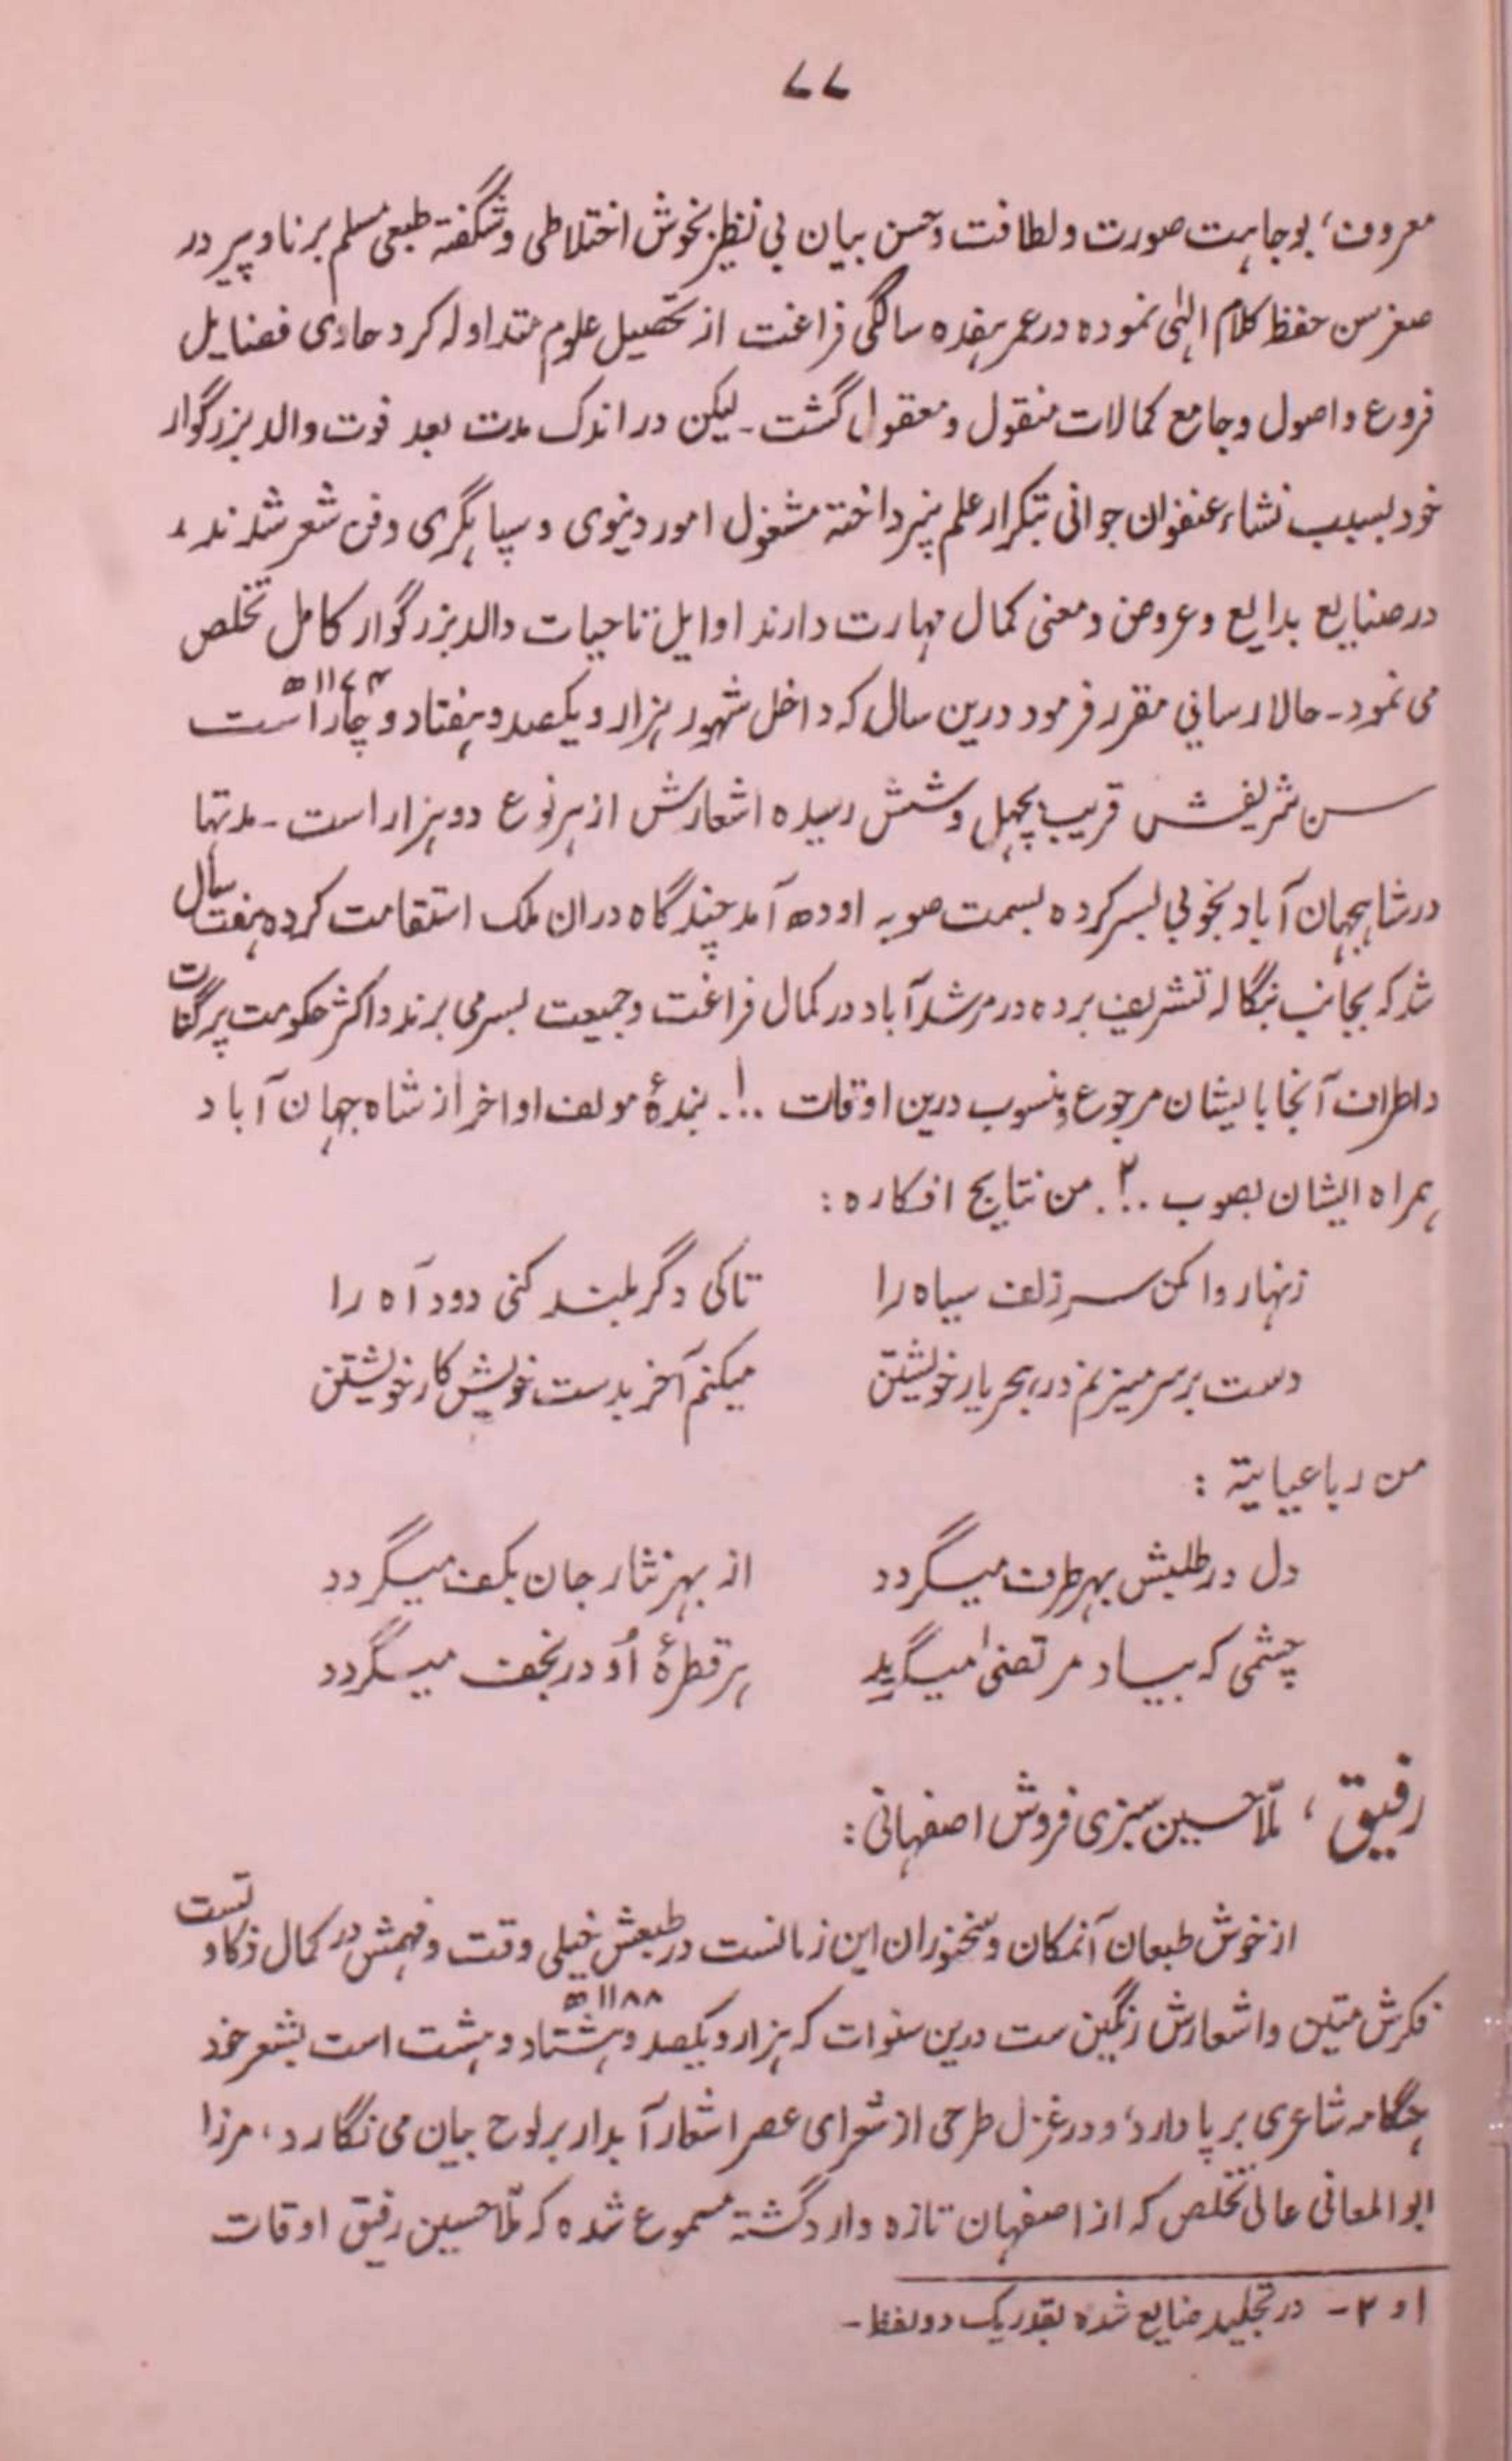 ۷۷
معروف، بوجاہت صورت ولطافت وحسن بیان بی نظیر بخوش اختلاطی وشگفتہ طبعی مسلم برنا وپیر در
صغر سن حفظ کلام الہٰی نمودہ درعمر ہفدہ سالگی فراغت از تحصیل علوم متداولہ کرد حاوی فضایل
فروع واصول وجامع کمالات منقول ومعقول گشت ۔ لیکن در اندک مدت بعد فوت والد بزرگوار
خود بسبب نشاء عنفوان جوانی بتکرار علم نپرداختہ مشغول امور دنیوی و سپاہگری وفن شعر شدند ،
درصنایع بدایع وعروض ومعنی کمال مہارت دارند اوایل تاحیات والد بزرگوار کامل تخلص
می نمود ۔ حالا رسائي مقرر فرمود درین سال کہ داخل شہور ہزار ویکصد وہفتاد و چار ۱۱۷۴ھ است
سن شریفش قریب بچہل وشش رسیدہ اشعارش از ہر نوع دو ہزار است ۔ مدتہا
در شاہجہان آباد بخوبی بسر کردہ بسمت صوبہ اودھ آمد چندگاہ دران ملک استقامت کردہ ہفت سال
شد کہ بجانب بنگالہ تشریف بردہ در مرشد آباد در کمال فراغت وجمیعت بسر می برند واکثر حکومت پرگنات
واطراف آنجا بایشان مرجوع ومنسوب درین اوقات ..۱. بندۂ مولف اواخر از شاہ جہان آباد
ہمراہ ایشان بصوب ..۲. من نتایج افکارہ :
زنہار وا مکن سر زلف سیاہ را تاکی دگر بلند کنی دود آہ را
دست برسر میزنم در ہجر یار خویشتن میکنم آخر بدست خویش کار خویشتن
من رباعیایتہ :
دل در طلبش بہر طرف میگردد از بہر نثار جان بکف میگردد
چشمی کہ بیاد مرتضیٰ میگرید ہر قطرۂ اُو در نجف میگردد
رفیق ، ملّا حسین سبزی فروش اصفہانی :
از خوش طبعان آنمکان وسخنوران این زمانست در طبعش خیلی وقت وفہمش در کمال ذکاوتست
فکرش متین واشعارش رنگین ست درین سنوات کہ ہزار ویکصد وہشتاد وہشت ۱۱۸۸ھ است بشعر خود
ہنگامہ شاعری برپا دارد، ودر غزل طرحی از شعرای عصر اشعار آبدار بر لوح بیان می نگارد، مرزا
ابوالمعانی عالی تخلص کہ از اصفہان تازہ وارد گشتہ مسموع شدہ کہ ملّا حسین رفیق اوقات
۱ و ۲ ۔ در تجلید ضایع شدہ بقدر یک دو لفظ ۔